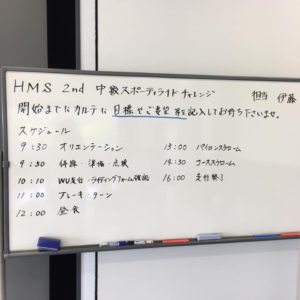 HMS 2nd 中級スポーティライドチャレンジ 担当 伊藤
開始までにカルテに目標やご要望等を記入してお待ち下さいませ。
スケジュール
9:30 オリエンテーション
9:50 準備・点検
10:10 WU走行・ライディングフォーム確認
11:00 ブレーキ・ターン
12:00 昼食
13:00 パイロンスラローム
14:30 コーススラローム
16:00 走行終了